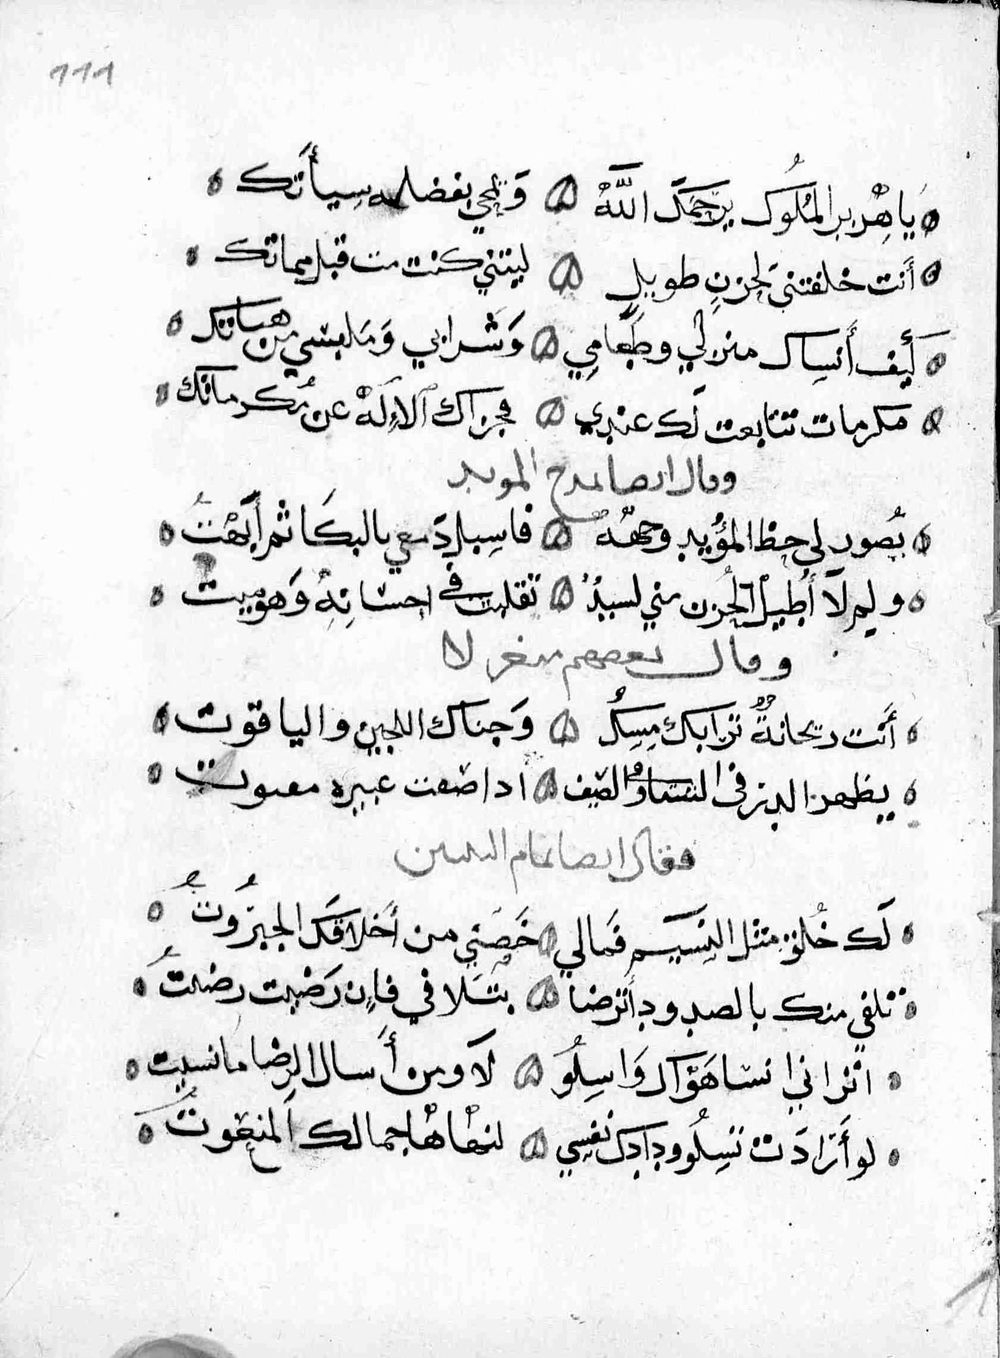 111
يا هزبر الملوك يرحمك اللَّهُ وَيمحي بفضله سيأتك
أنت خلفتني لحزنٍ طويلٍ ليتني كنت مت قبل مماتك
كَيف أَنساك منزلي وطَعَامِي وَشَرابي وَمَلبسي من هباتك
مكرمات تتابعت لَك عندي فجزاك الاِلَهُ عن مُكرماتك
وقال ايضا يمدح المويد
يُصور لي حظ المؤيد وجههُ فاسبل دَمعي بالبكَا ثم أَبهتُ
ولم لَا أُطيل الحُزن مني لسيدٍ تقلبت في احسانِهِ وَهو ميت
وقال بعضهم متغزلا
أَنت ريحانةٌ ترابك مِسكُ وَجناك اللجين والياقوت
يظهر البدر في الشتا والصيف اذا ضعت عبيره مفتوت
فقال ايضا تمام البيتين
لَك خُلق مثل النسِيَم فَمالي خَصني من أَخلاقكَ الجبرُوتُ
تلفي منك بالصدود أترضا بتَلافي فاِن رَضيت رضيتُ
اتراني انسا هَوَاك وَاسِلُو لَا ومن أَسال الرِضا مانسيت
لو أَرادَت تَسِلُو ودادك نفسي لنهاها جمالك المنعوتُ